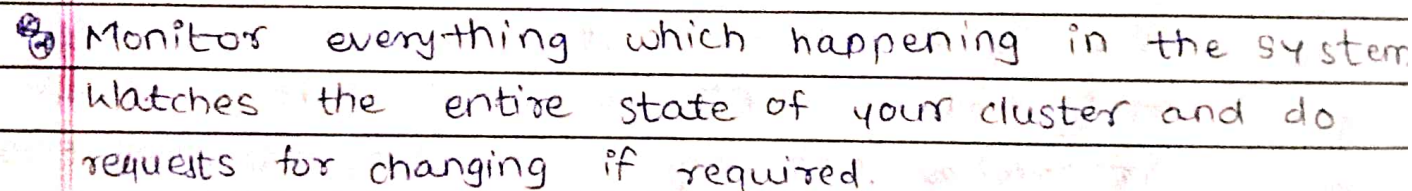 Monitor everything which happening in the system
Watches the entire state of your cluster and do
requests for changing if required.